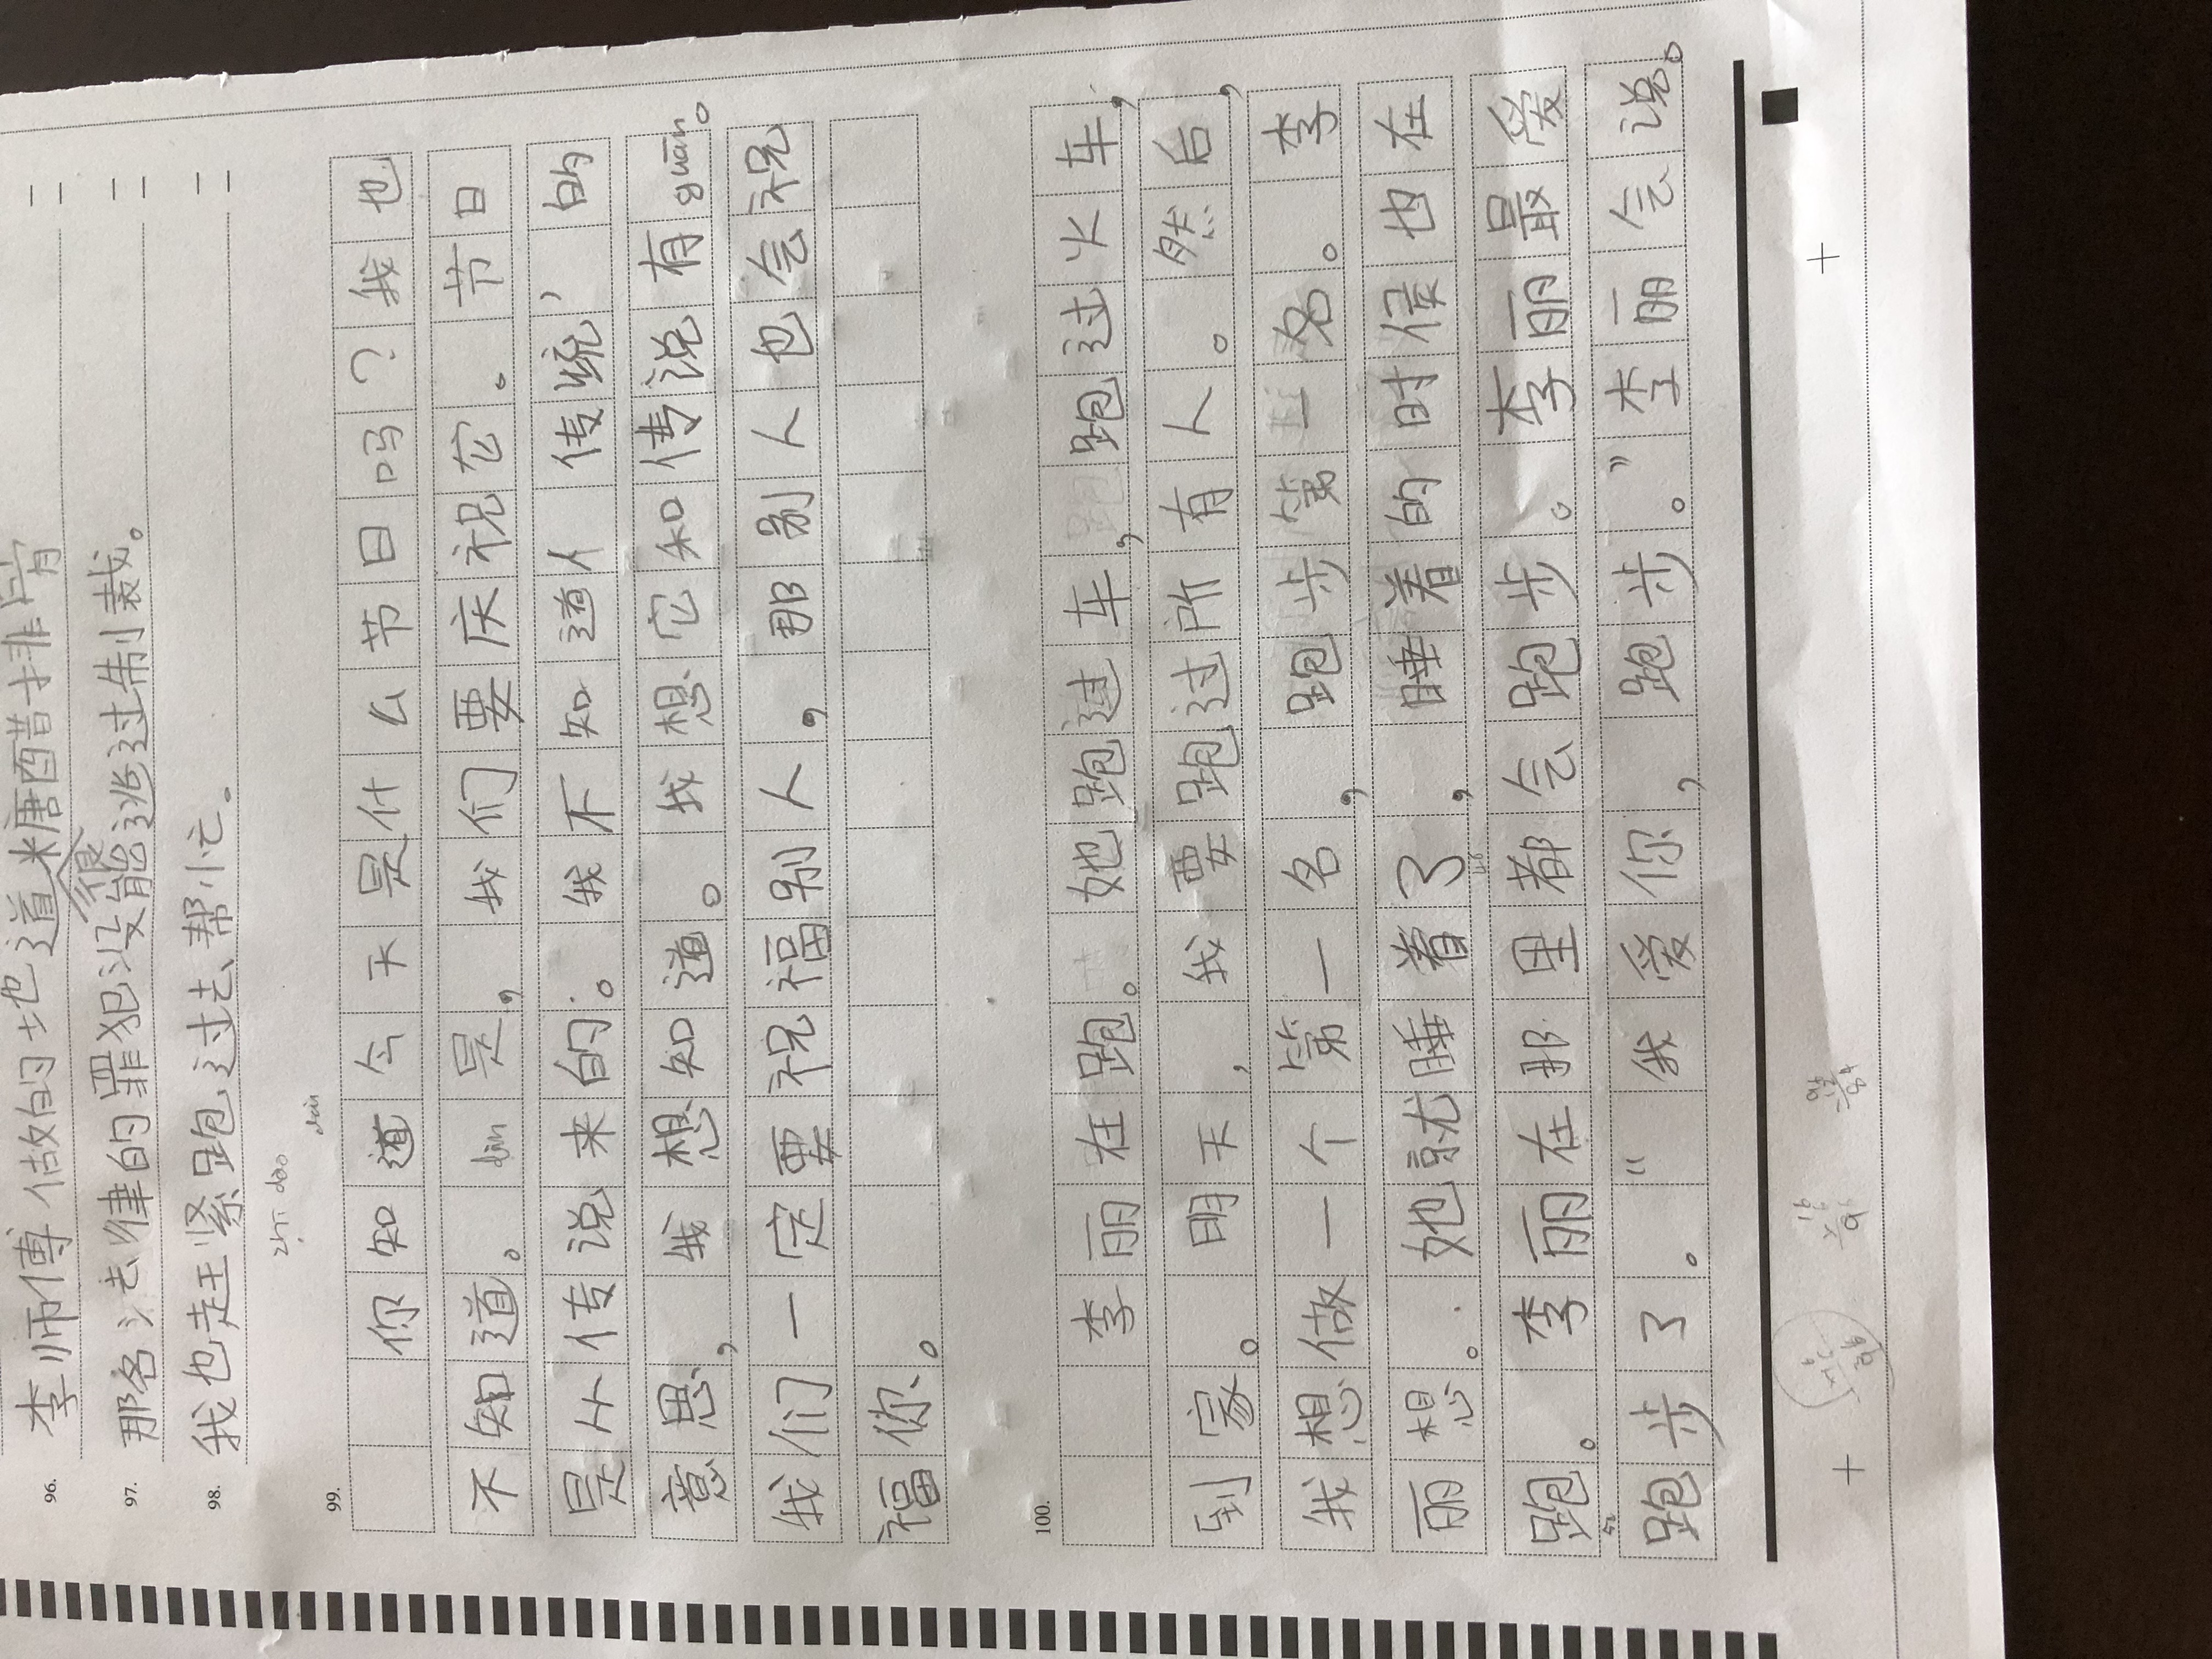 96. 李师傅做的地道糖醋排骨
很
97. 那名法律的罪犯没能逃过制裁。
98. 我也赶紧跑过去帮忙。
dàn
99.
你知道今天是什么节日吗？我也
不知道。dàn是，我们要庆祝它。节日
是从传说来的。我不知道人传统，的
意思，我想知道。我想它和传说有guān。
我们一定要祝福别人，那别人也会祝
福你。
100.
李丽在跑。她跑过车，跑过火车，
到家。明天，我要跑过所有人。然后，
我想做一个第一名，跑步第一名。李
丽想。她就睡着了，睡着的时候也在
跑。李丽在那里都会跑步。李丽最爱
跑步了。“我爱你，跑步。”李丽会说。